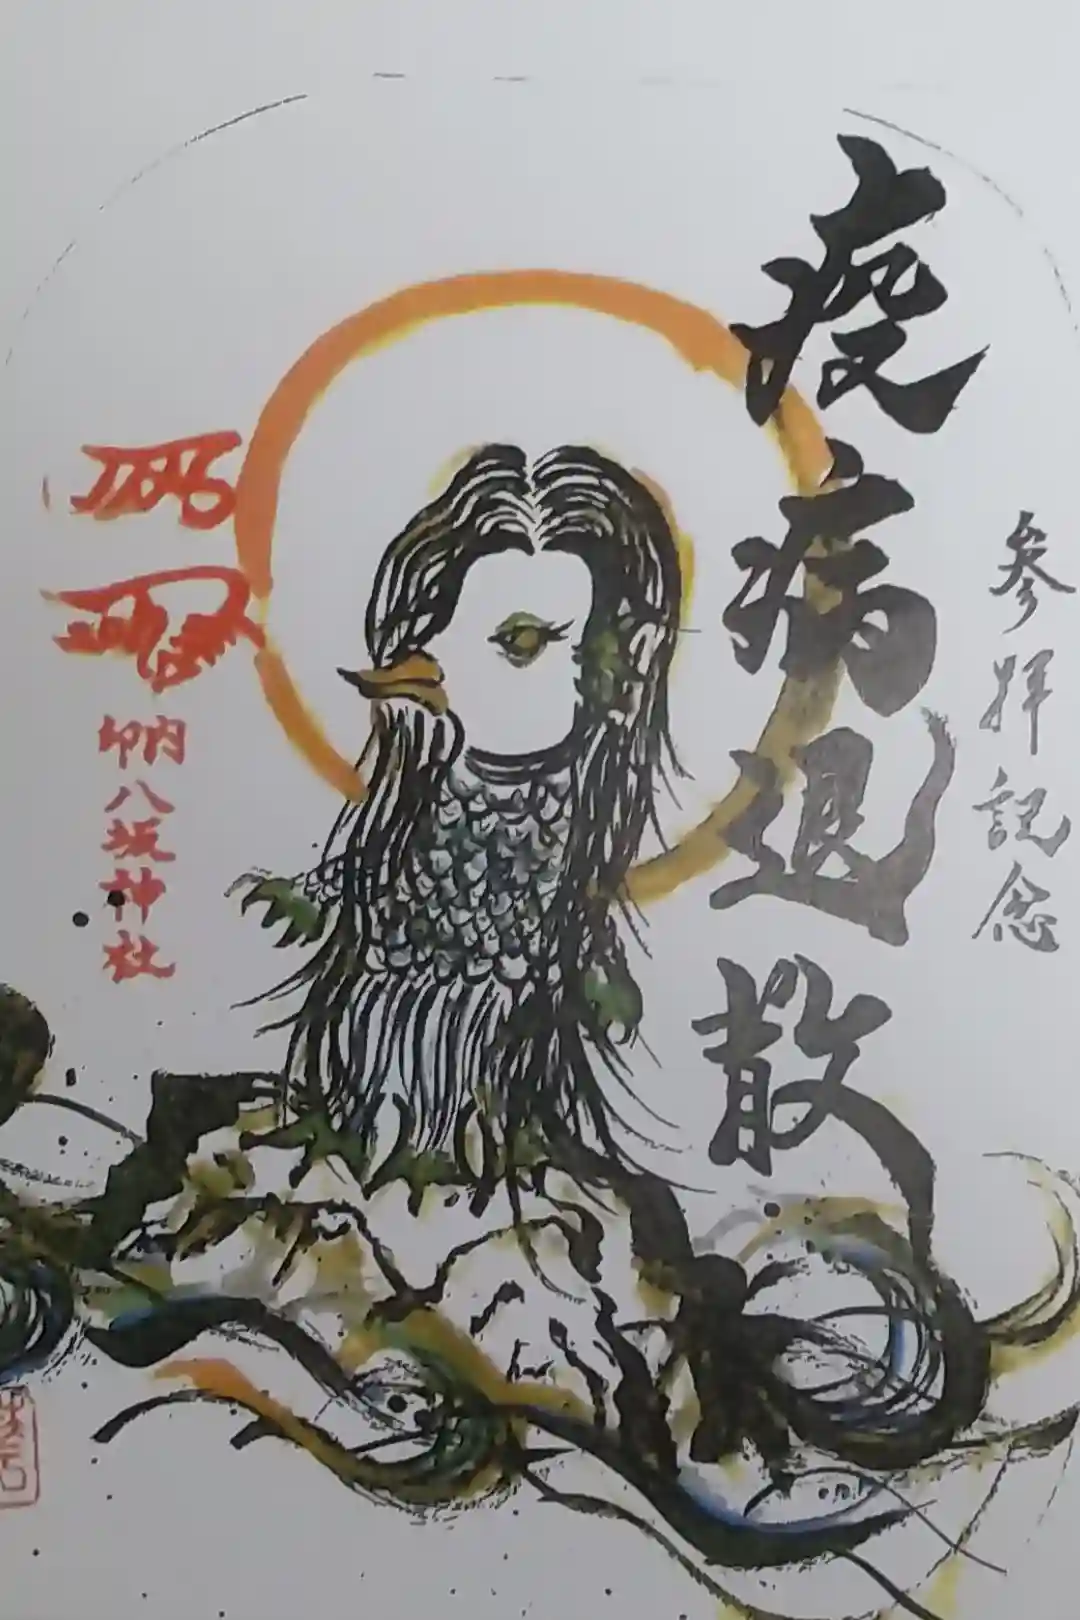 参拝記念
疫病退散
印内八坂神社